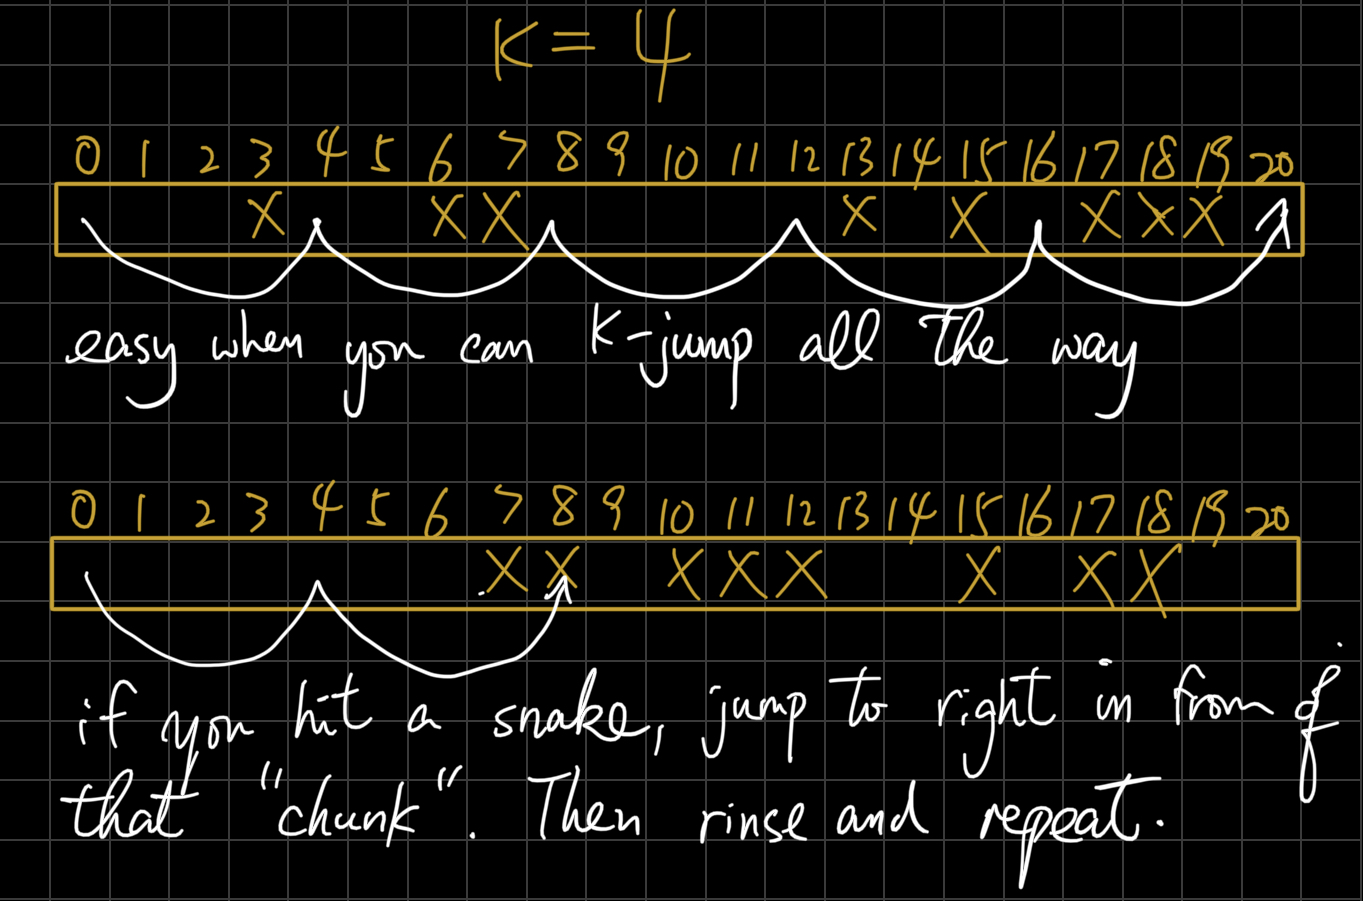 K = 4
0 1 2 3 4 5 6 7 8 9 10 11 12 13 14 15 16 17 18 19 20
X X X X X X X X
easy when you can K-jump all the way
0 1 2 3 4 5 6 7 8 9 10 11 12 13 14 15 16 17 18 19 20
X X X X X X X X
if you hit a snake, jump to right in from of
that "chunk". Then rinse and repeat.